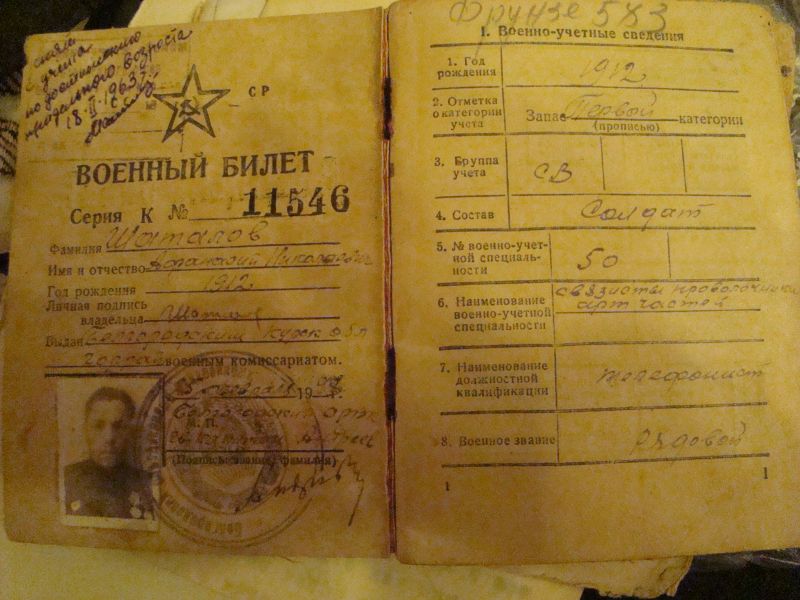 снят
с учета
по достижению
предельного возраста
18.II.1963 г.
СР
ВОЕННЫЙ БИЛЕТ
Серия К № 11546
Фамилия Шаталов
Имя и отчество Николаевич
Год рождения 1912
Личная подпись
владельца
Выдан Белгородским Курск обл
военным комиссариатом.
М. П.
(Подпись, звание, фамилия)
Фрунзе 583
I. Военно-учетные сведения
1. Год рождения 1912
2. Отметка о категории учета Запас Первой категории
(прописью)
3. Группа учета СВ
4. Состав Солдат
5. № военно-учетной специальности 50
6. Наименование военно-учетной специальности связисты проволочники арт частей
7. Наименование должностной квалификации телефонист
8. Военное звание рядовой
1
1